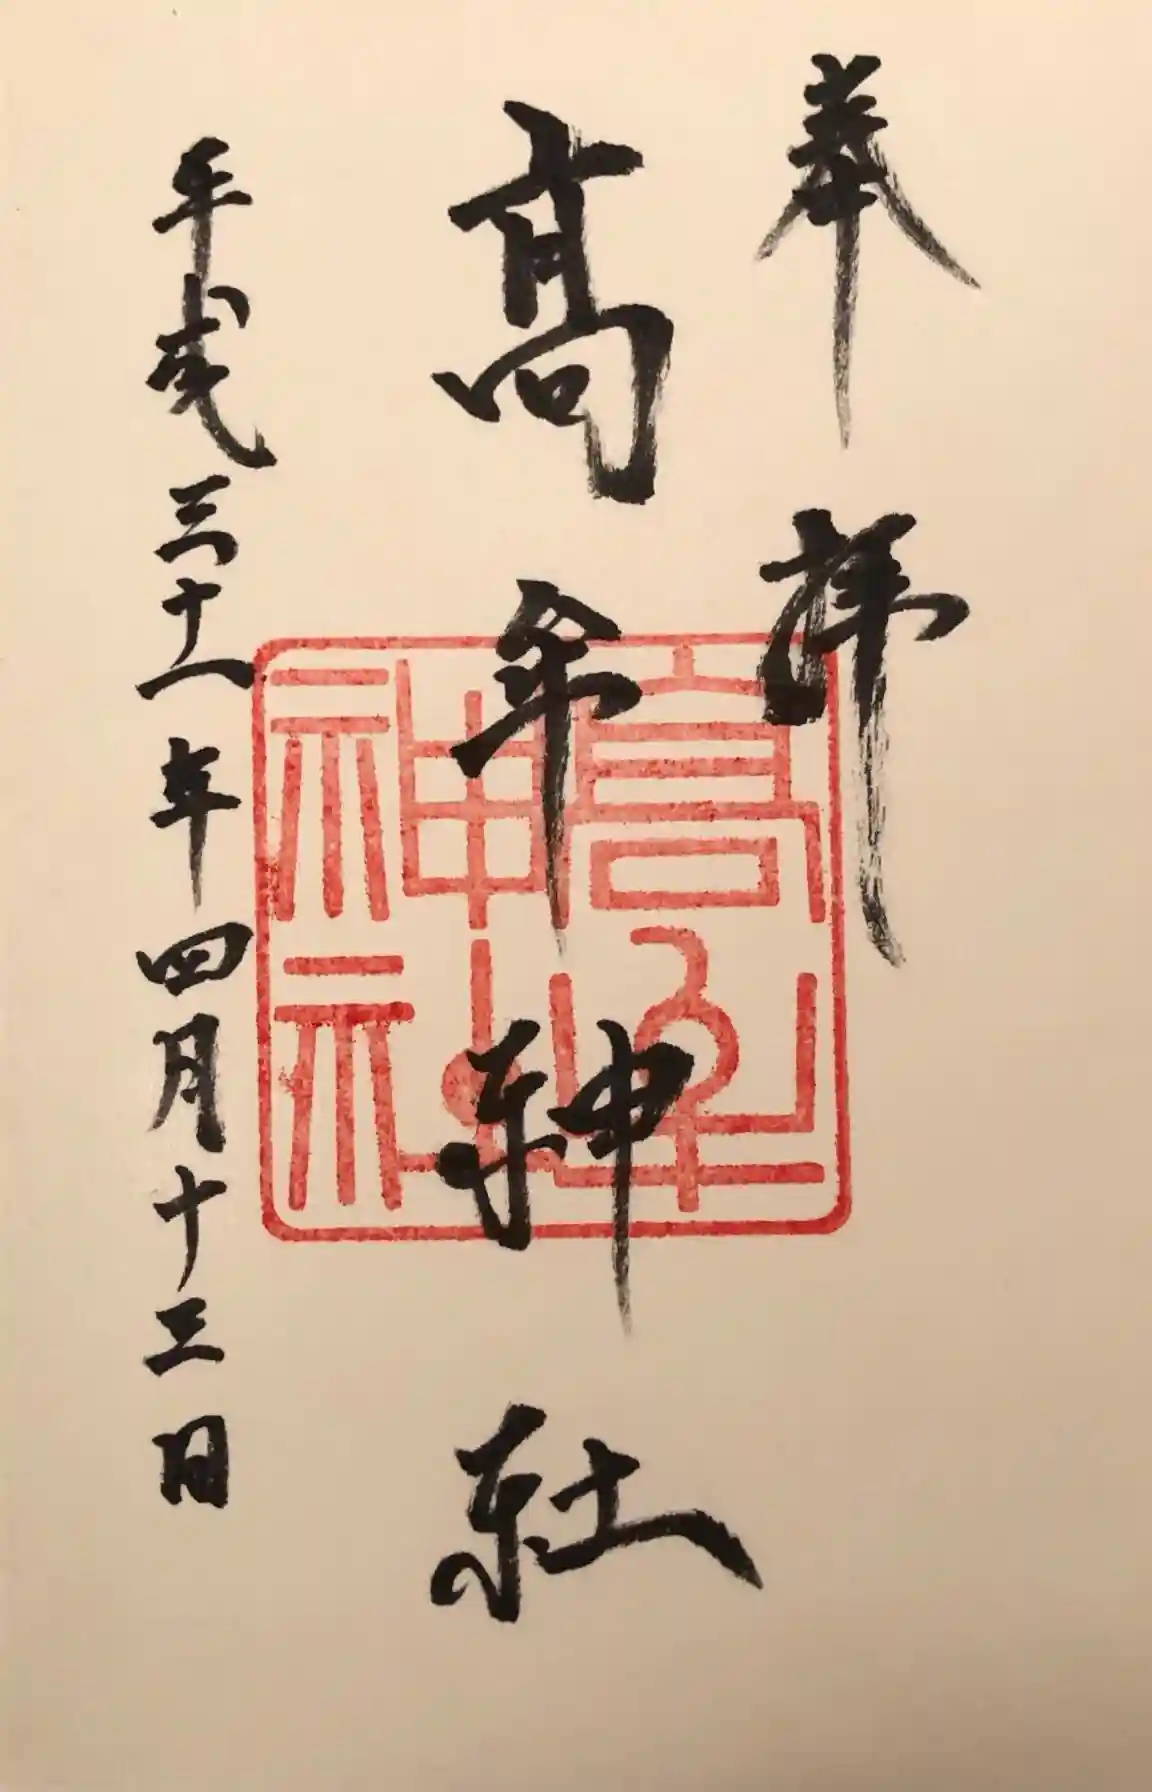 奉拝
髙牟神社
平成三十一年四月十三日
髙牟
神社